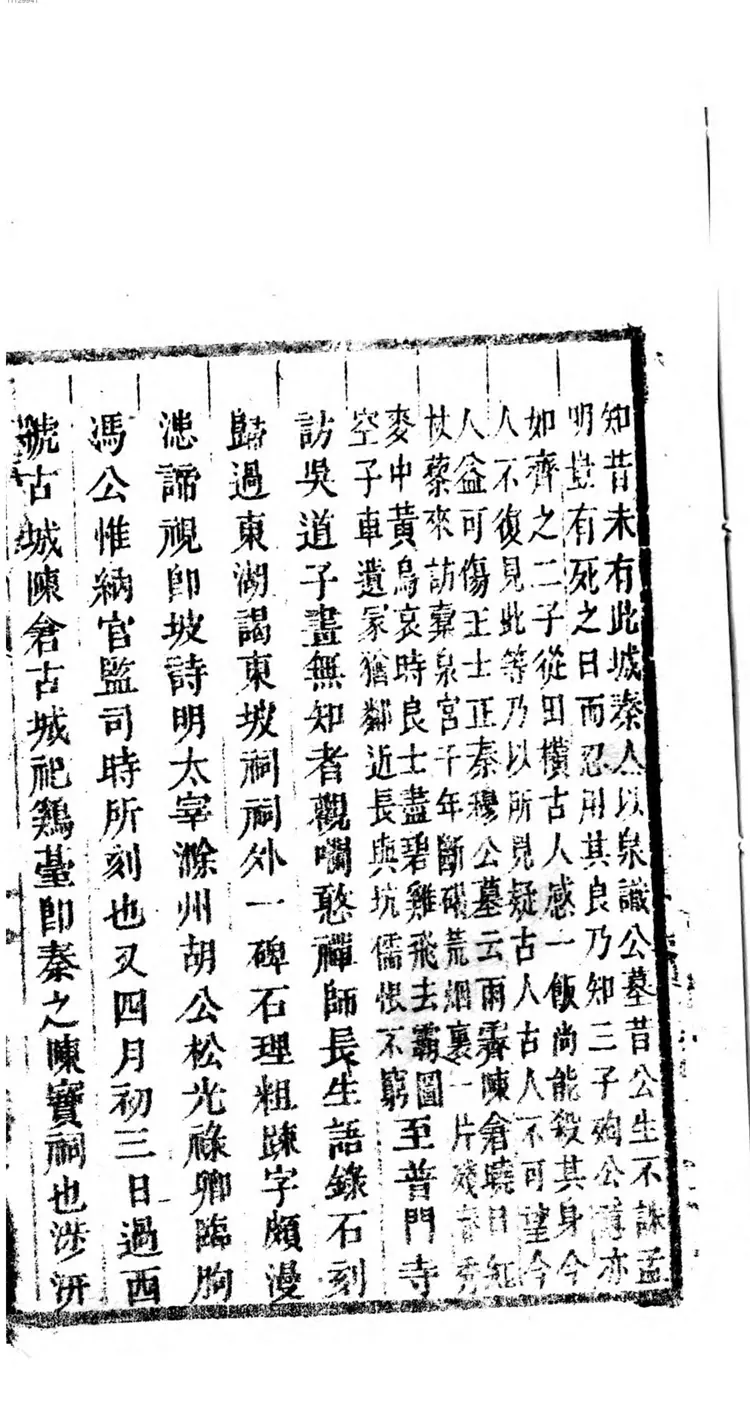 知昔未有此城秦人以泉識公墓昔公生不誅孟
明豈有死之日而忍用其良乃知三子殉公意亦
如齊之二子從田橫古人感一飯尚能殺其身今
人不復見此等乃以所見疑古人古人不可望今
人益可傷王士正秦穆公墓云雨霽陳倉曉日紅
杖藜來訪橐泉宮千年斷碣荒烟裏一片殘春秀
麥中黃鳥哀時良士盡碧雞飛去霸圖
空子車遺冢猶鄰近長與坑儒恨不窮
至普門寺
訪吳道子畫無知者觀嬾憨禪師長生語錄石刻
歸過東湖謁東坡祠祠外一碑石理粗踈字頗漫
漶諦視即坡詩明太宰滁州胡公松光祿卿臨朐
馮公惟納官監司時所刻也又四月初三日過西
虢古城陳倉古城祀鷄臺即秦之陳寶祠也涉汧